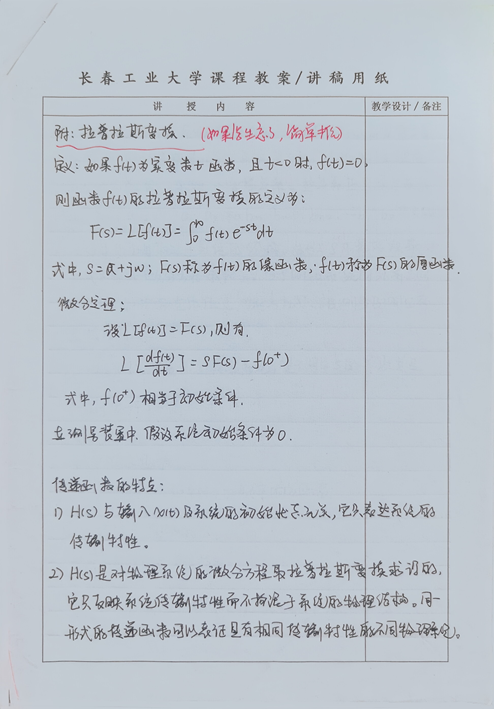 长春工业大学课程教案/讲稿用纸
讲 授 内 容 教学设计/备注
附:拉普拉斯变换. (如果学生忘了,简单提)
定义:如果f(t)为实变数t函数,且t<0时,f(t)=0.
则函数f(t)的拉普拉斯变换的定义为:
F(s)=L[f(t)]=∫₀^∞ f(t)e^{-st}dt
式中,s=α+jw;F(s)称为f(t)的像函数,f(t)称为F(s)的原函数.
微分定理:
设L[f(t)]=F(s),则有.
L[df(t)/dt]=SF(s)-f(0⁺)
式中,f(0⁺)相当于初始条件.
在测量装置中,假设系统初始条件为0.
传递函数的特点:
1) H(s)与输入x(t)及系统的初始状态无关,它只表达系统的
传输特性。
2) H(s)是对物理系统的微分方程取拉普拉斯变换求得的,
它只反映系统传输特性而不拘泥于系统的物理结构。同一
形式的传递函数可以表征具有相同传输特性的不同物理系统。